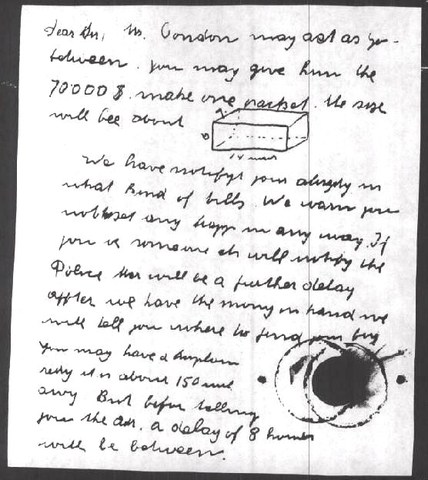 Dear Sir, Mr. Condon may act as go-
between. you may give him the
70000 $. make one packet. the size
will bee about
We have notifyt your allredy in
what kind of bills. We warn you
not to set any trapp in any way. If
you or someone els will notify the
Police ther will be a further delay
affter we have the mony in hand we
will tell you where to find your boy
You may have a airplain
redy it is about 150 mil
awy. But befor telling
you the adr. a delay of 8 houers
will be between.